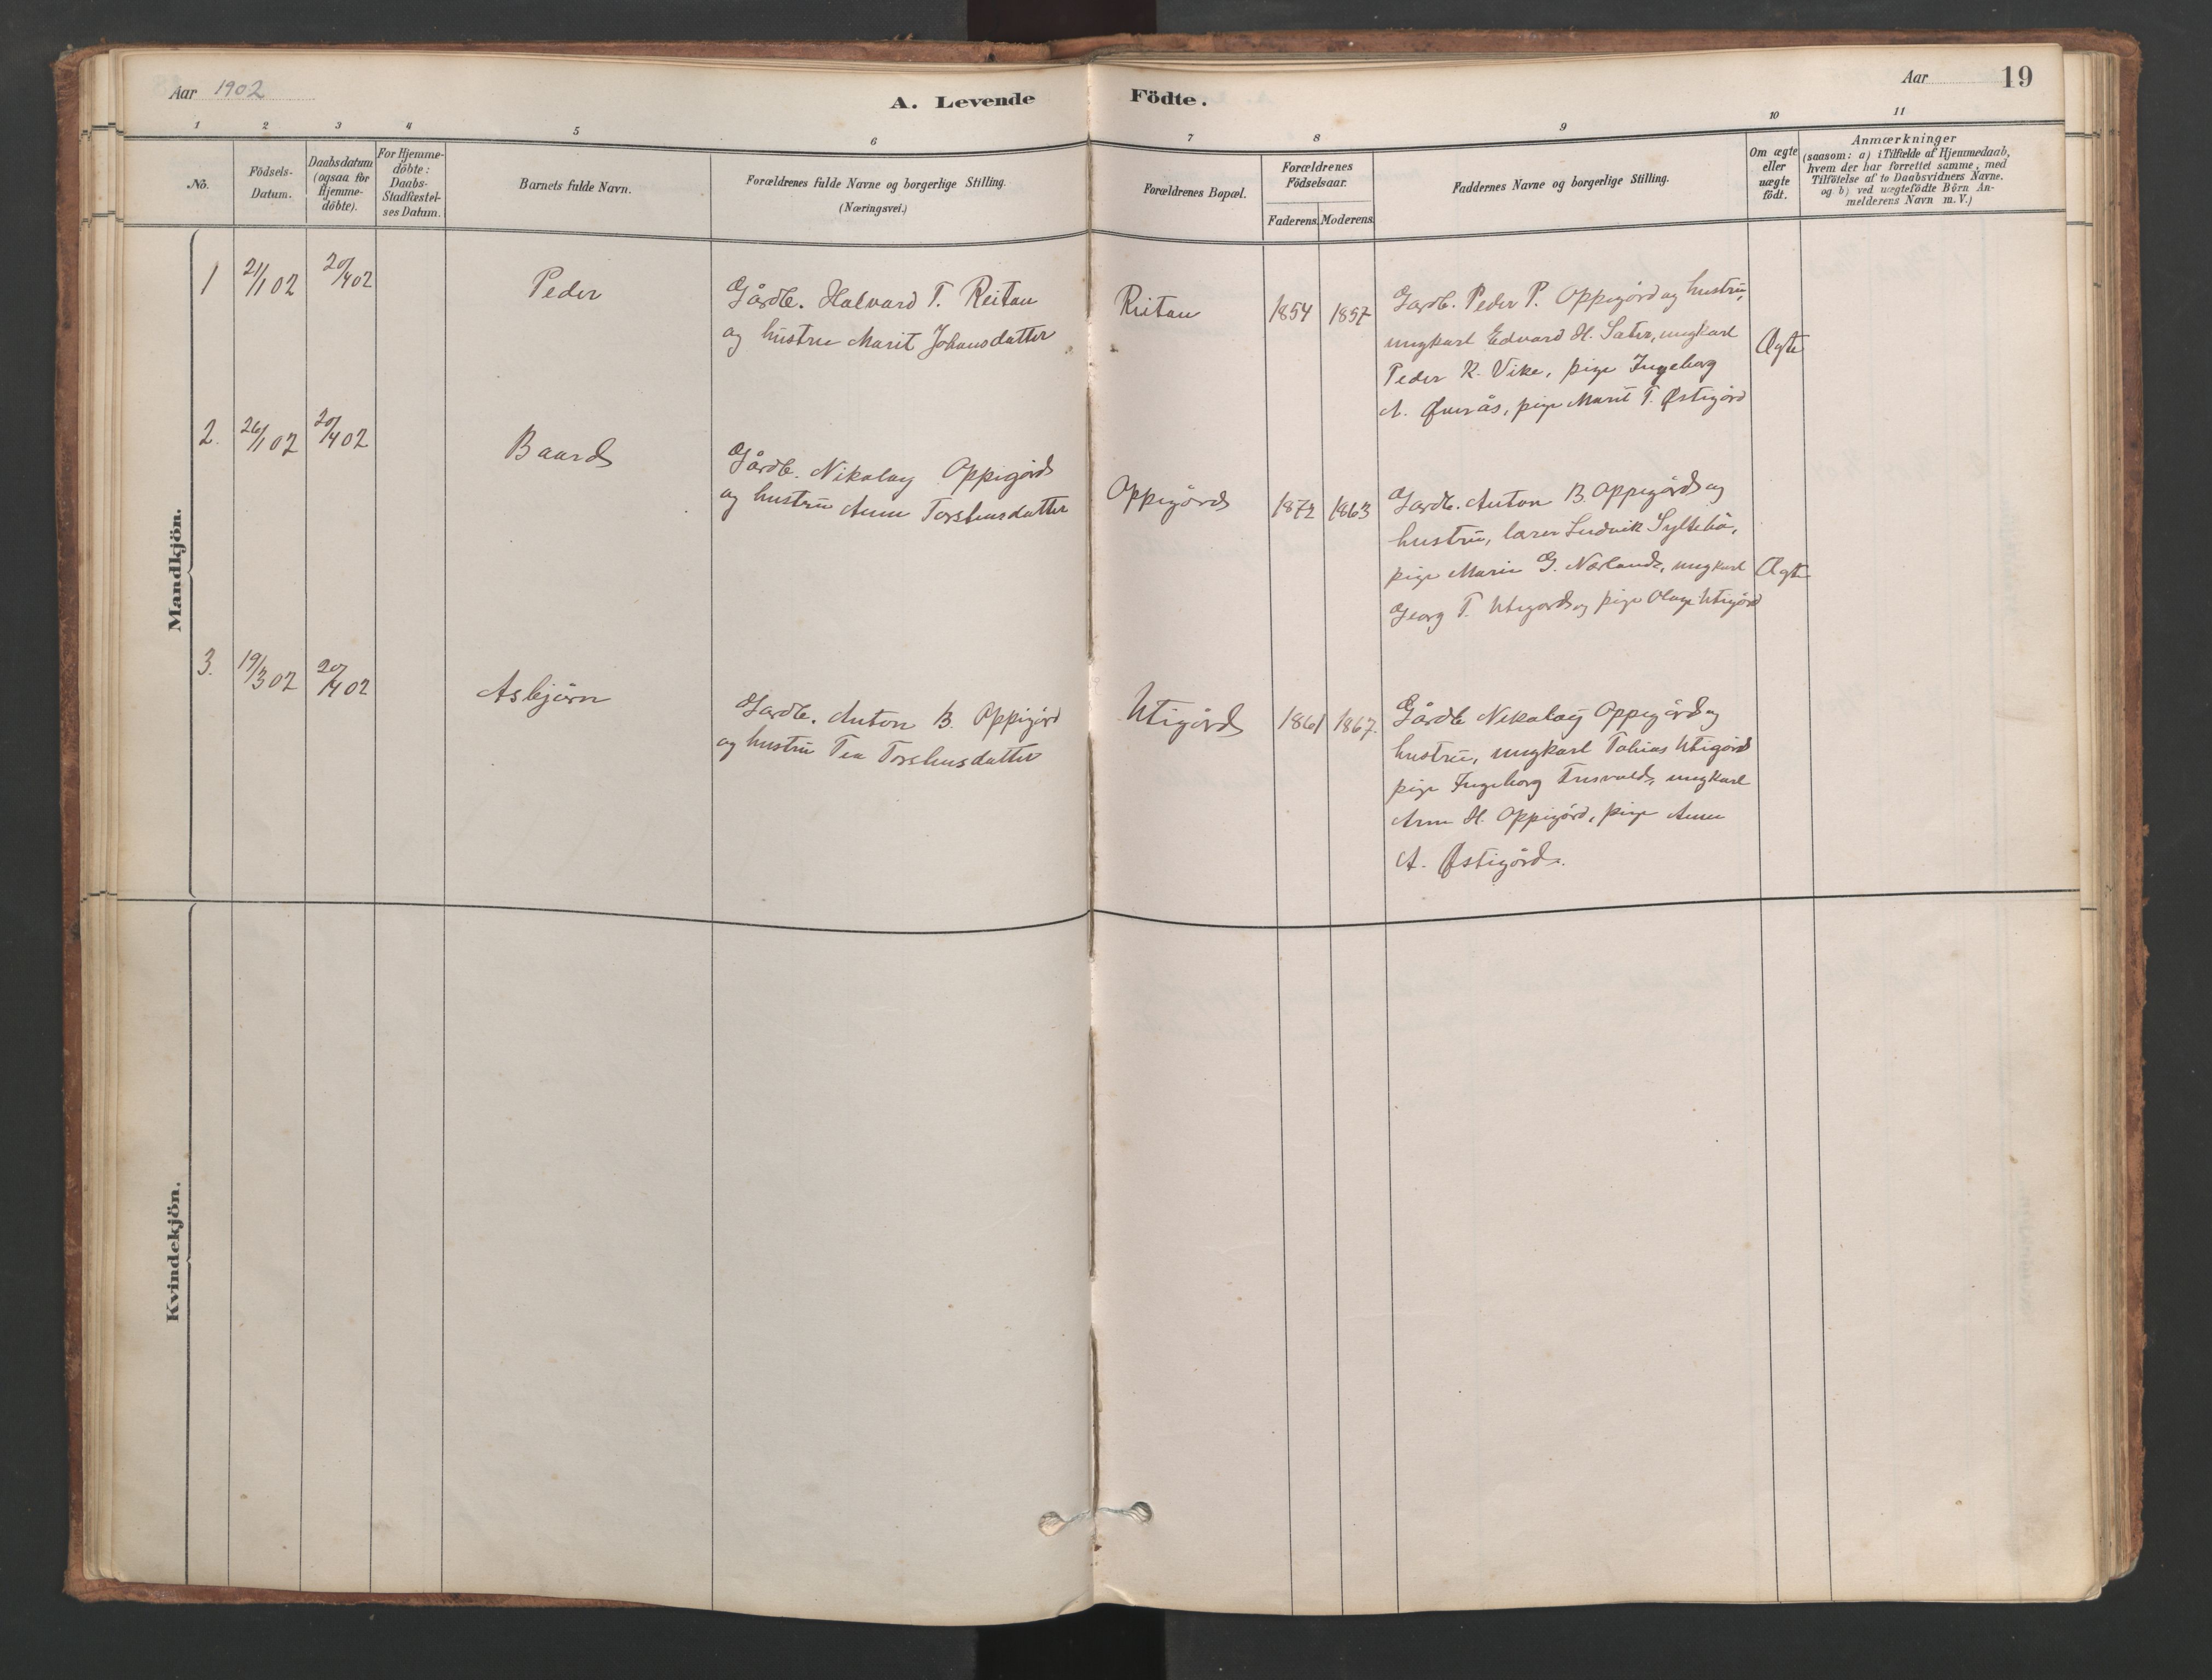 Aar 1902
A. Levende Födte.
Aar
19
1 2 3 4 5 6 7 8 9 10 11
No.
Födsels-
Datum.
Daabsdatum
(ogsaa for
Hjemme-
döbte).
For Hjemme-
döbte:
Daabs-
Stadfæstel-
ses Datum.
Barnets fulde Navn.
Forældrenes fulde Navne og borgerlige Stilling.
(Næringsvei.)
Forældrenes Bopæl.
Forældrenes
Födselsaar.
Faderens. Moderens.
Faddernes Navne og borgerlige Stilling.
Om ægte
eller
uægte
födt.
Anmærkninger
(saasom: a) i Tilfælde af Hjemmedaab,
hvem der har forrettet samme, med
Tilföielse af to Daabsvidners Navne.
og b) ved uægtefödte Börn An-
melderens Navn m.V.)
Mandkjön.
1 21/1 02 20/4 02 Peder
Gårdb. Halvard T. Reitan
og hustru Marit Johansdatter
Reitan 1854 1857
Gardb. Peder P. Oppigård og hustrü,
ungkarl Edvard H. Sater, ungkarl
Peder K. Vike, pige Ingeborg
A. Øverås, pige Marit T. Østigård
Ægte
2. 26/1 02 20/4 02 Baard
Gårdb. Nikolay Oppigård
og hustrü Anne Torstensdatter
Oppigård 1872 1863
Gardb. Anton B. Oppigård og
hustrü, lærer Ludvik Syltebö,
pige Marie G. Nerland, ungkarl
Georg T. Utigard og pige Olaug Utigård
Ægte
3. 19/3 02 20/4 02 Asbjörn
Gardb. Anton B. Oppigård
og hustrü Tea Torstensdatter
Utigård 1861 1867.
Gårdb Nikolaij Oppigård og
hustrü, ungkarl Tobias Utigård
pige Ingeborg ungkarl
Arne H. Oppigård, pige Anne
A. Østigård.
Kvindekjön.